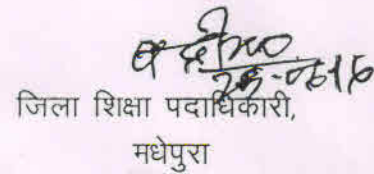 जिला शिक्षा पदाधिकारी,
मधेपुरा